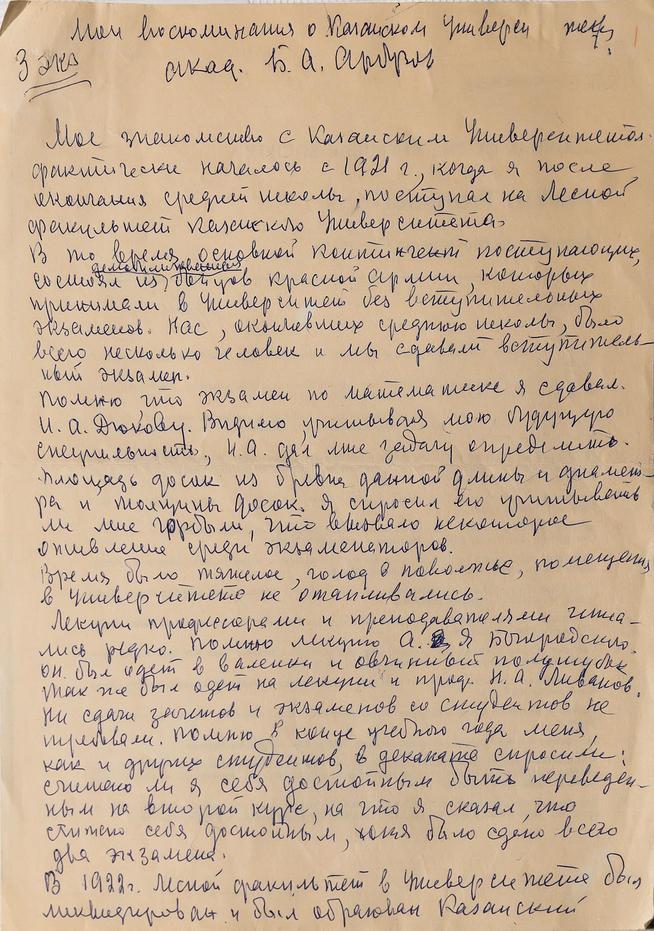 Мои воспоминания о Казанском Университете
3 экз
акад. Б. А. Арбузов
Мое знакомство с Казанским Университетом
фактически началось с 1921 г., когда я после
окончания средней школы, поступал на Лесной
факультет Казанского Университета.
В то время основной контингент поступающих,
демобилизованных
состоял из бойцов красной Армии, которых
принимали в Университет без вступительных
экзаменов. Нас, окончивших среднюю школу, было
всего несколько человек и мы сдавали вступитель-
ный экзамен.
Помню что экзамен по математике я сдавал
И. А. Дюкову. Видимо, учитывая мою будущую
специальность, И. А. дал мне задачу определить
площадь досок из бревна данной длины и диамет-
ра и толщины досок. Я спросил его учитывать
ли мне горбыли, что вызвало некоторое
оживление среди экзаменаторов.
Время было тяжелое, голод в поволжье, помещения
в Университете не отапливались.
Лекции профессорами и преподавателями чита-
лись редко. Помню лекцию А. Я Богородского.
он был одет в валенки и овчинный полушубок
так же был одет на лекции и проф. Н. А. Ливанов.
Ни сдачи зачетов и экзаменов со студентов не
требовали. Помню в конце учебного года меня,
как и других студентов, в деканате спросили:
считаю ли я себя достойным быть переведен-
ным на второй курс, на что я сказал, что
считаю себя достойным, хотя было сдано всего
два экзамена.
В 1922 г. Лесной факультет в Университете был
ликвидирован и был образован Казанский